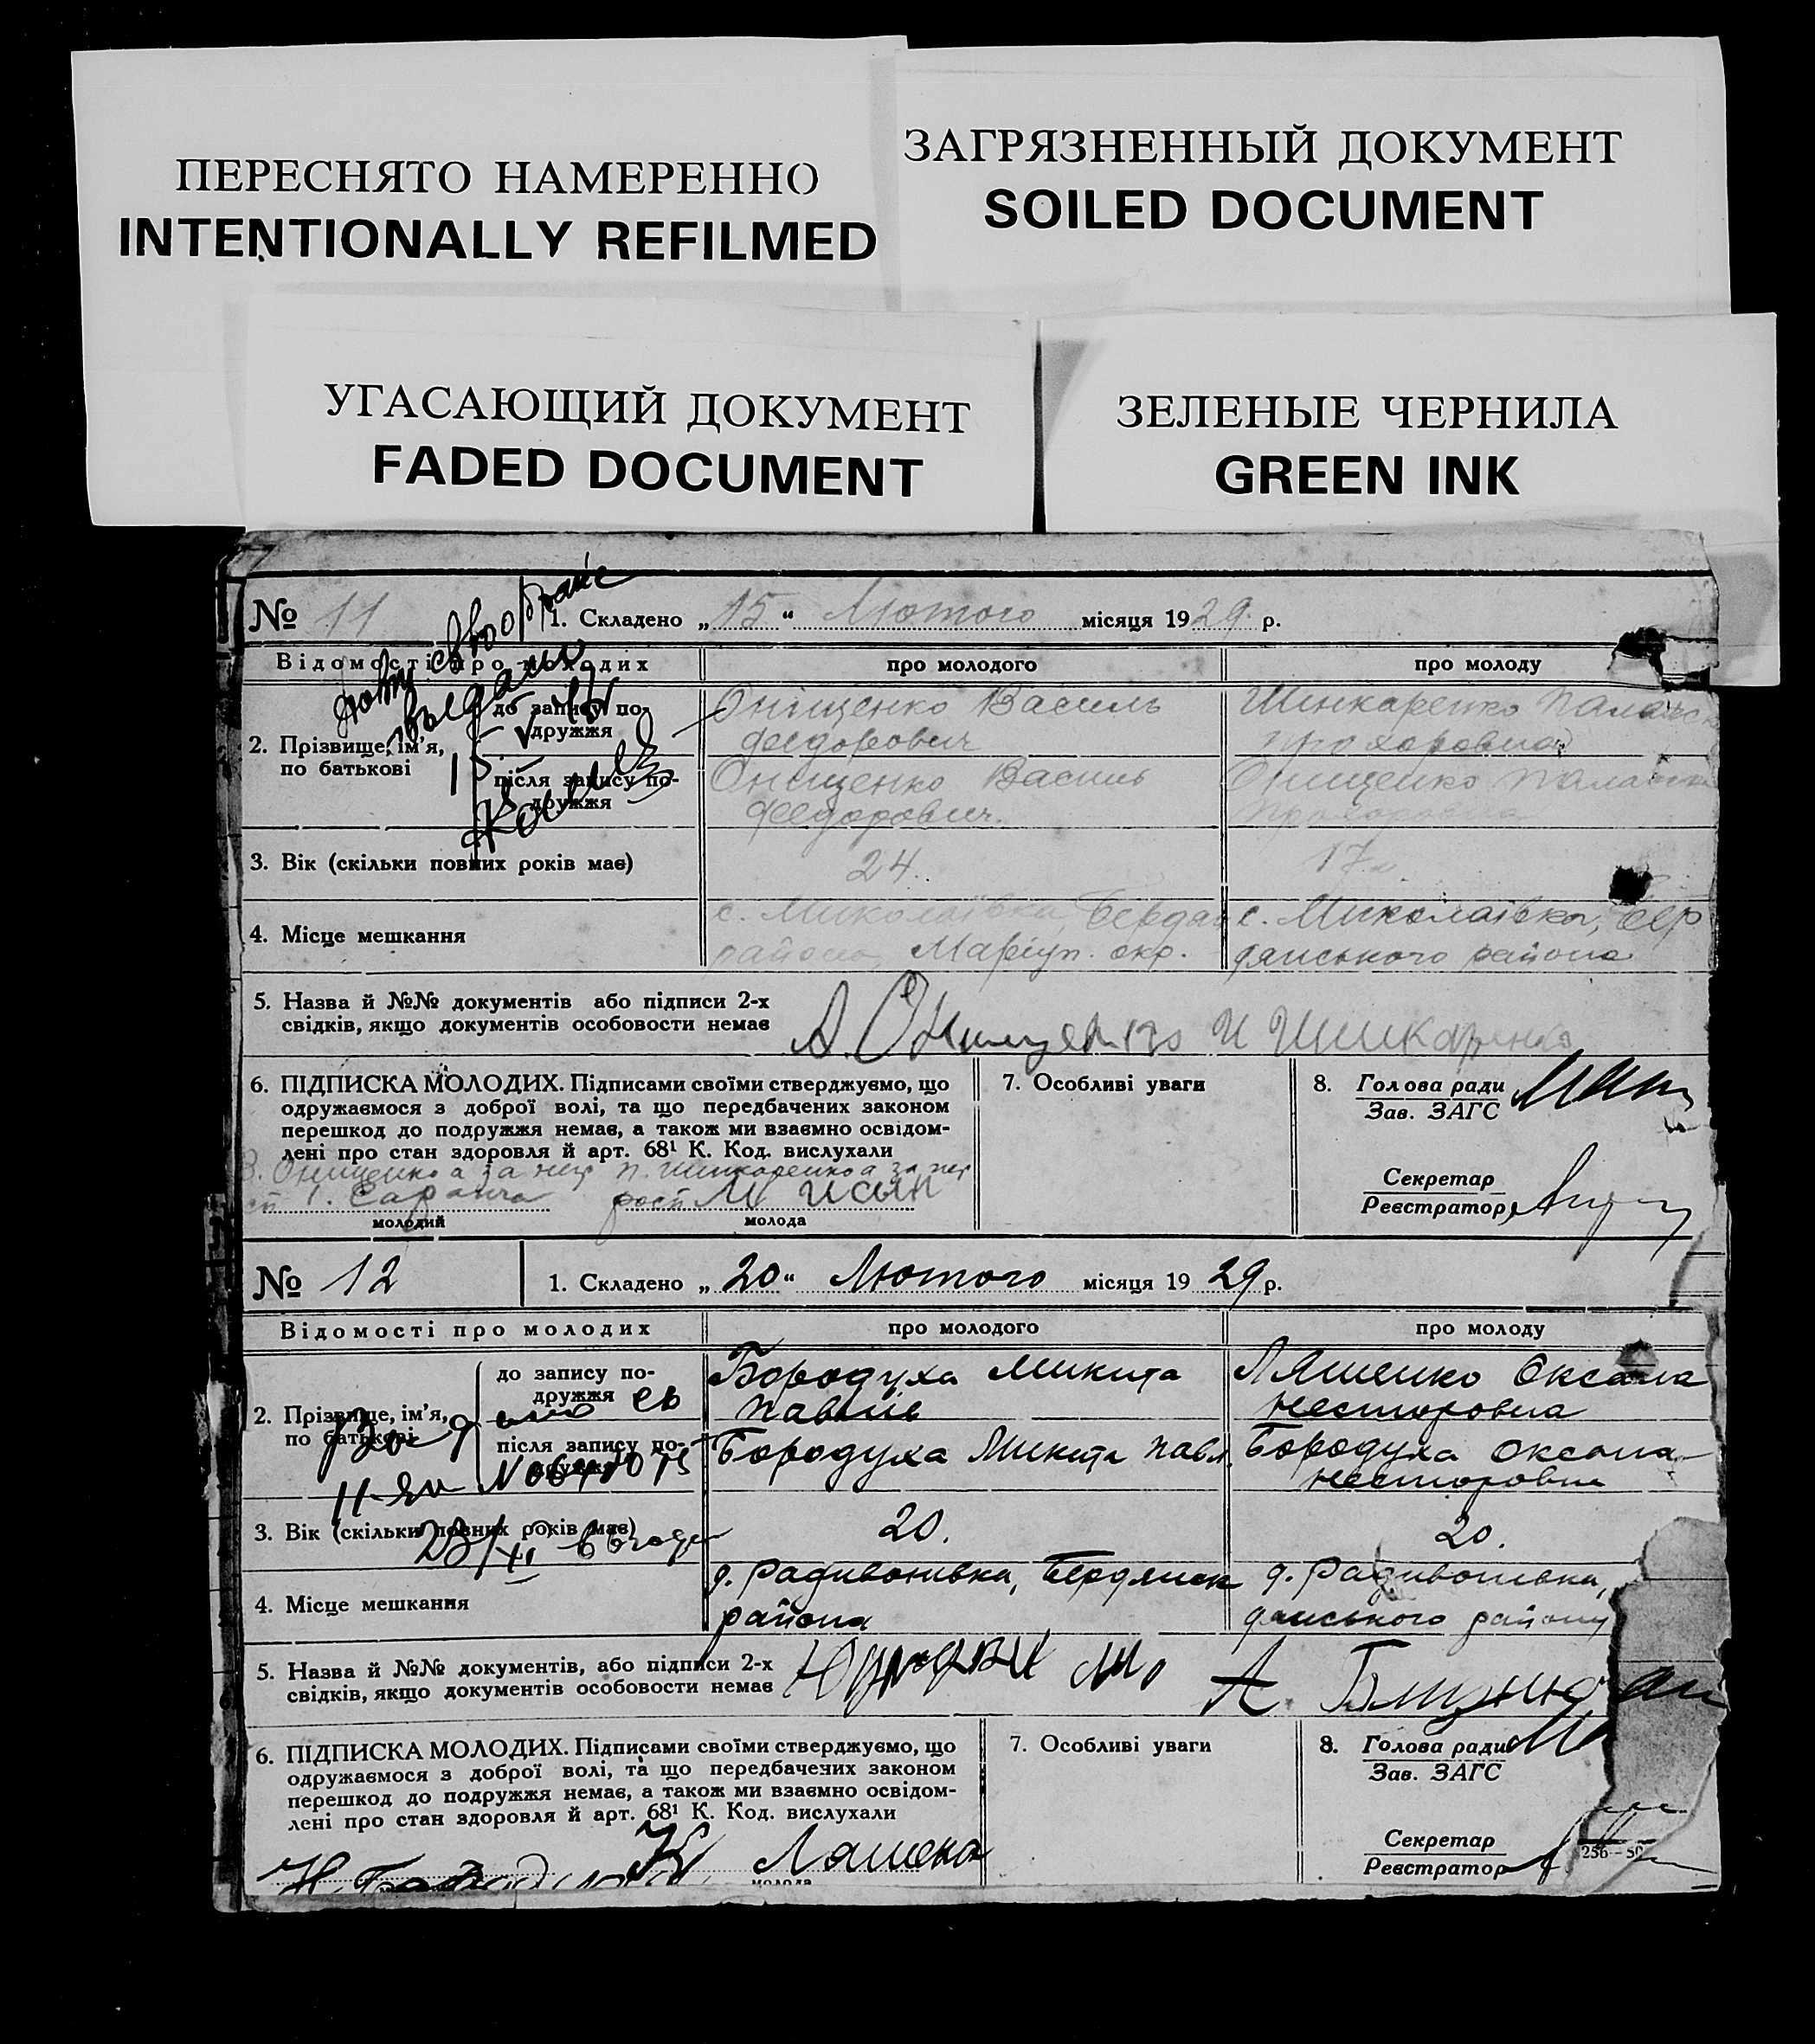 ПЕРЕСНЯТО НАМЕРЕННО
INTENTIONALLY REFILMED
ЗАГРЯЗНЕННЫЙ ДОКУМЕНТ
SOILED DOCUMENT
УГАСАЮЩИЙ ДОКУМЕНТ
FADED DOCUMENT
ЗЕЛЕНЫЕ ЧЕРНИЛА
GREEN INK
№ 11
1. Складено „15“ Лютого місяця 1929 р.
Відомості про молодих
про молодого
про молоду
2. Прізвище, ім'я,
по батькові
до запису по-
дружжя
Оніщенко Василь
Федорович
Шинкаренко
Прохоровна
після запису по-
дружжя
Оніщенко Василь
Федорович.
Онищенко
3. Вік (скільки повних років має)
24.
17
4. Місце мешкання
с. Миколаївка, Бердян
району, Маріуп. окр.
с. Миколаївка, Бер
дянського района
5. Назва й №№ документів або підписи 2-х
свідків, якщо документів особовости немає
А. Онищенко И Шинкаренко
6. ПІДПИСКА МОЛОДИХ. Підписами своїми стверджуємо, що
одружаємося з доброї волі, та що передбачених законом
перешкод до подружжя немає, а також ми взаємно освідом-
лені про стан здоров'я й арт. 68¹ К. Код. вислухали
В. Онищенко а за нер П. Шинкаренко а за нер
молодий
молода
7. Особливі уваги
8. Голова ради
Зав. ЗАГС
Секретар
Реєстратор
№ 12
1. Складено „20“ Лютого місяця 1929 р.
Відомості про молодих
про молодого
про молоду
2. Прізвище, ім'я,
по батькові
до запису по-
дружжя
Бородуха Микита
Павлів
Ляшенко Оксана
Несторовна
після запису по-
дружжя
Бородуха Микита Павл.
Бородуха Оксана
Несторовна
3. Вік (скільки повних років має)
20.
20.
4. Місце мешкання
д. Радивонівка, Бердянськ
района
д. Радивонівка,
дянського району
5. Назва й №№ документів, або підписи 2-х
свідків, якщо документів особовости немає
6. ПІДПИСКА МОЛОДИХ. Підписами своїми стверджуємо, що
одружаємося з доброї волі, та що передбачених законом
перешкод до подружжя немає, а також ми взаємно освідом-
лені про стан здоровля й арт. 68¹ К. Код. вислухали
молода
7. Особливі уваги
8. Голова ради
Зав. ЗАГС
Секретар
Реєстратор